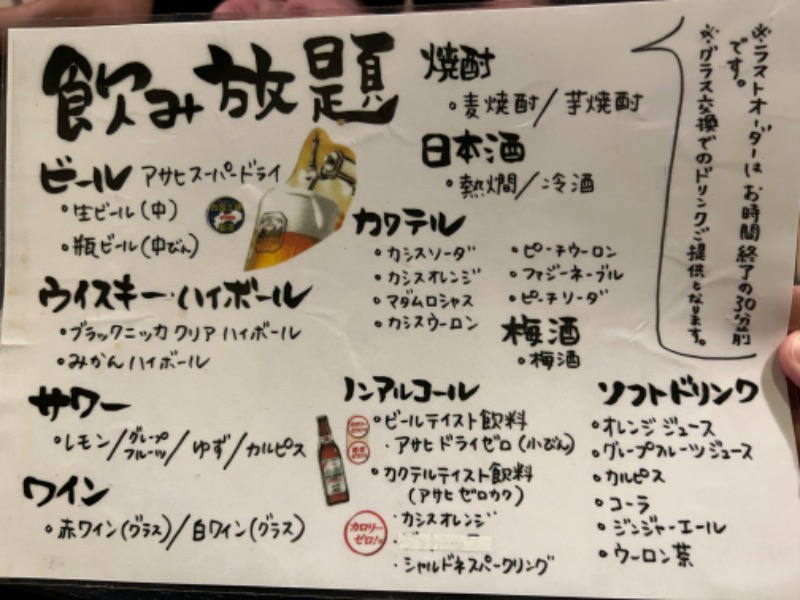 飲み放題
ビール アサヒスーパードライ
・生ビール(中)
・瓶ビール(中びん)
ウイスキー・ハイボール
・ブラックニッカ クリア ハイボール
・みかんハイボール
サワー
・レモン/グレープフルーツ/ゆず/カルピス
ワイン
・赤ワイン(グラス)/白ワイン(グラス)
焼酎
・麦焼酎/芋焼酎
日本酒
・熱燗/冷酒
カクテル
・カシスソーダ
・カシスオレンジ
・マダムロシャス
・カシスウーロン
・ピーチウーロン
・ファジーネーブル
・ピーチソーダ
梅酒
・梅酒
ノンアルコール
・ビールテイスト飲料
・アサヒドライゼロ(小びん)
・カクテルテイスト飲料
(アサヒゼロカク)
カロリーゼロ!!
・カシスオレンジ
・シャルドネスパークリング
ソフトドリンク
・オレンジジュース
・グレープフルーツジュース
・カルピス
・コーラ
・ジンジャーエール
・ウーロン茶
※ラストオーダーはお時間終了の30分前
です。
※グラス交換でのドリンクご提供となります。